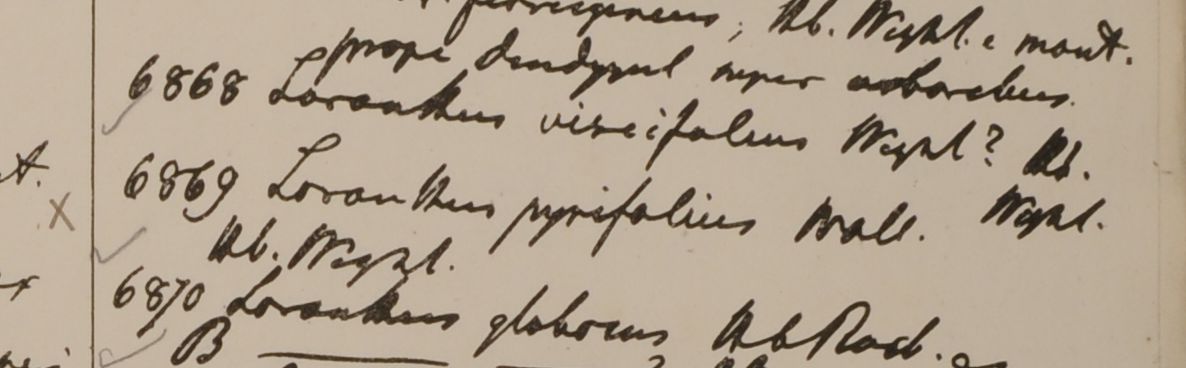 Hb. Wight. e mont.
prope Dindygul super arboribus.
6868 Loranthus viscifolius Wight? Hb. Wight.
6869 Loranthus pyrifolius Wall.
Hb. Wight.
6870 Loranthus globosus Hb Roxb.
B